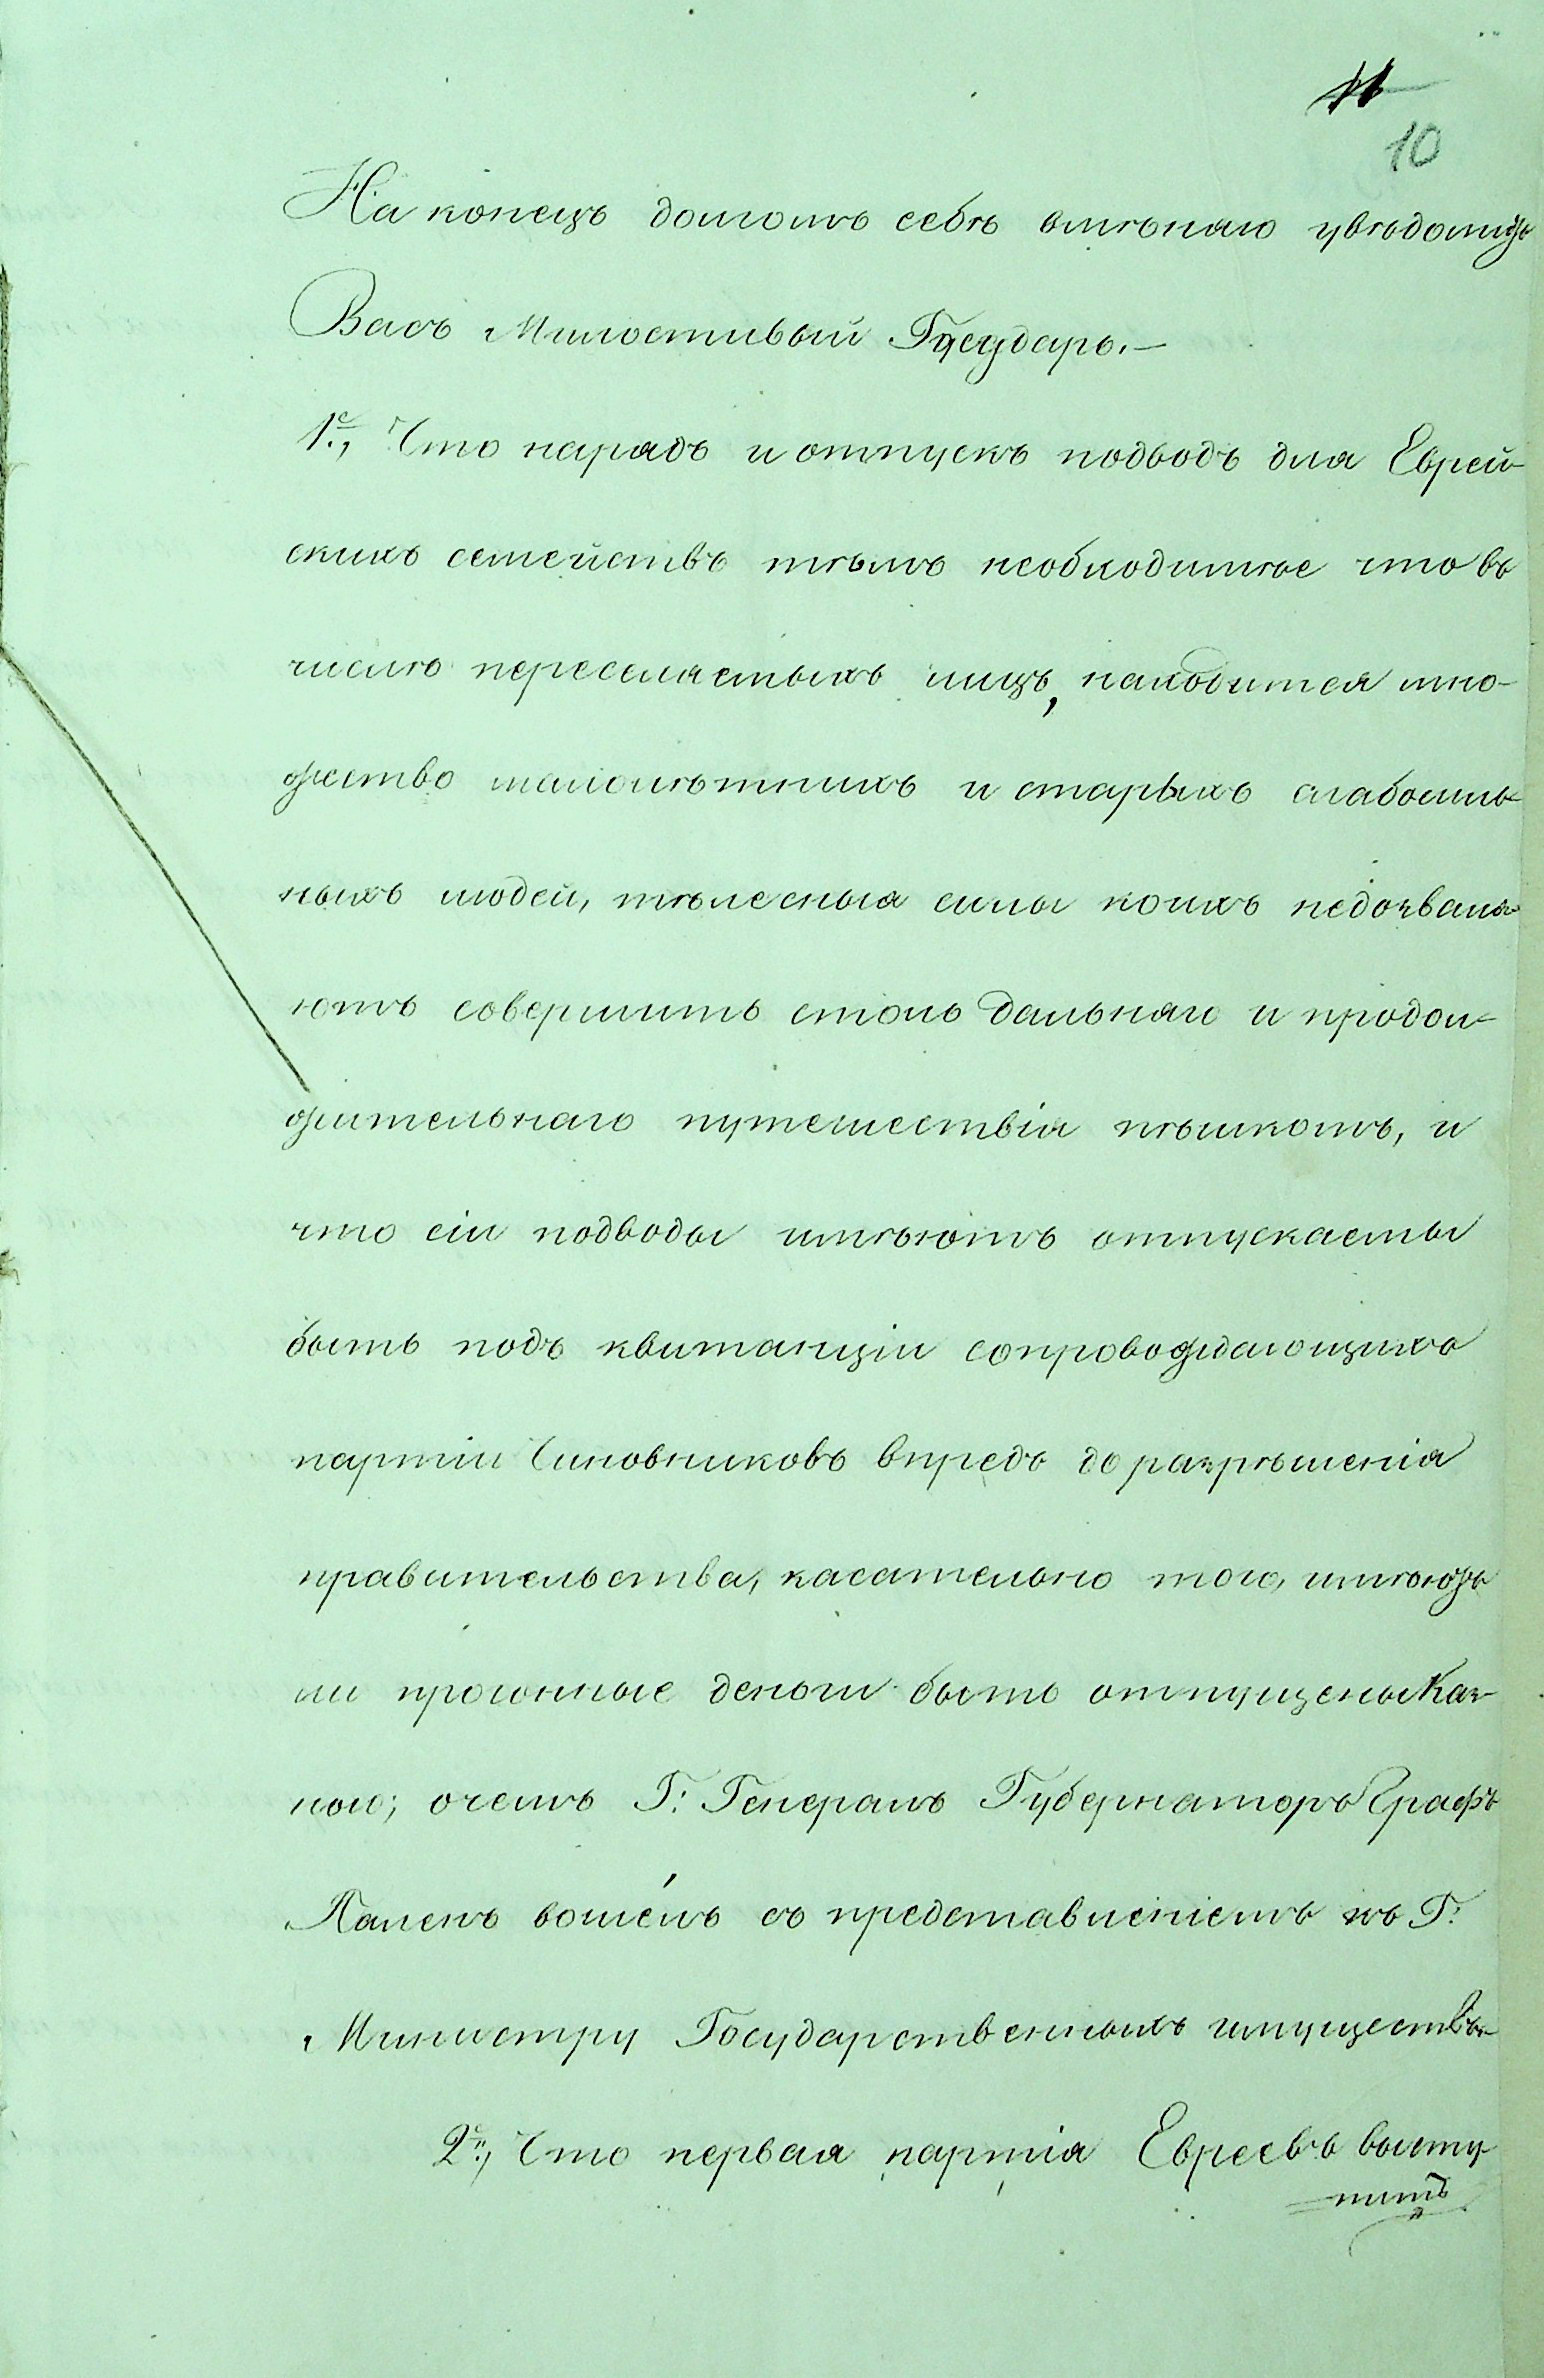 11
10
На конецъ долгомъ себѣ вмѣняю увѣдомить
Васъ Милостивый Государь.—
1е., Что нарядъ и отпускъ подводъ для Еврей-
скихъ семействъ тѣмъ необходимѣе что въ
числѣ переселяемыхъ лицъ, находится мно-
жество малолѣтнихъ и старыхъ слабосиль-
ныхъ людей, тѣлесныя силы коихъ недозваля-
ютъ совершить столь дальняго и продол-
жительнаго путешествія пѣшкомъ, и
что сіи подводы имѣютъ отпускаемы
быть подъ квитанціи сопровождающихъ
партіи Чиновниковъ впредь до разрѣшенія
правительства, касательно того, имѣютъ
ли прогонные деньги быть отпущены Каз-
ною; очемъ Г: Генералъ Губернаторъ Графъ
Паленъ вошелъ съ представленіемъ къ Г:
Министру Государственныхъ имуществъ.—
2е., Что первая партія Евреевъ высту-
питъ